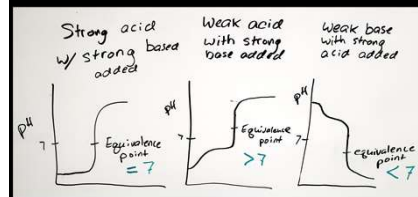 Strong acid
w/ strong based
added
pH
7
Equivalence
point
= 7
Weak acid
with strong
base added
pH
7
Equivalence
point
>7
Weak base
with strong
acid added
pH
7
equivalence
point
<7